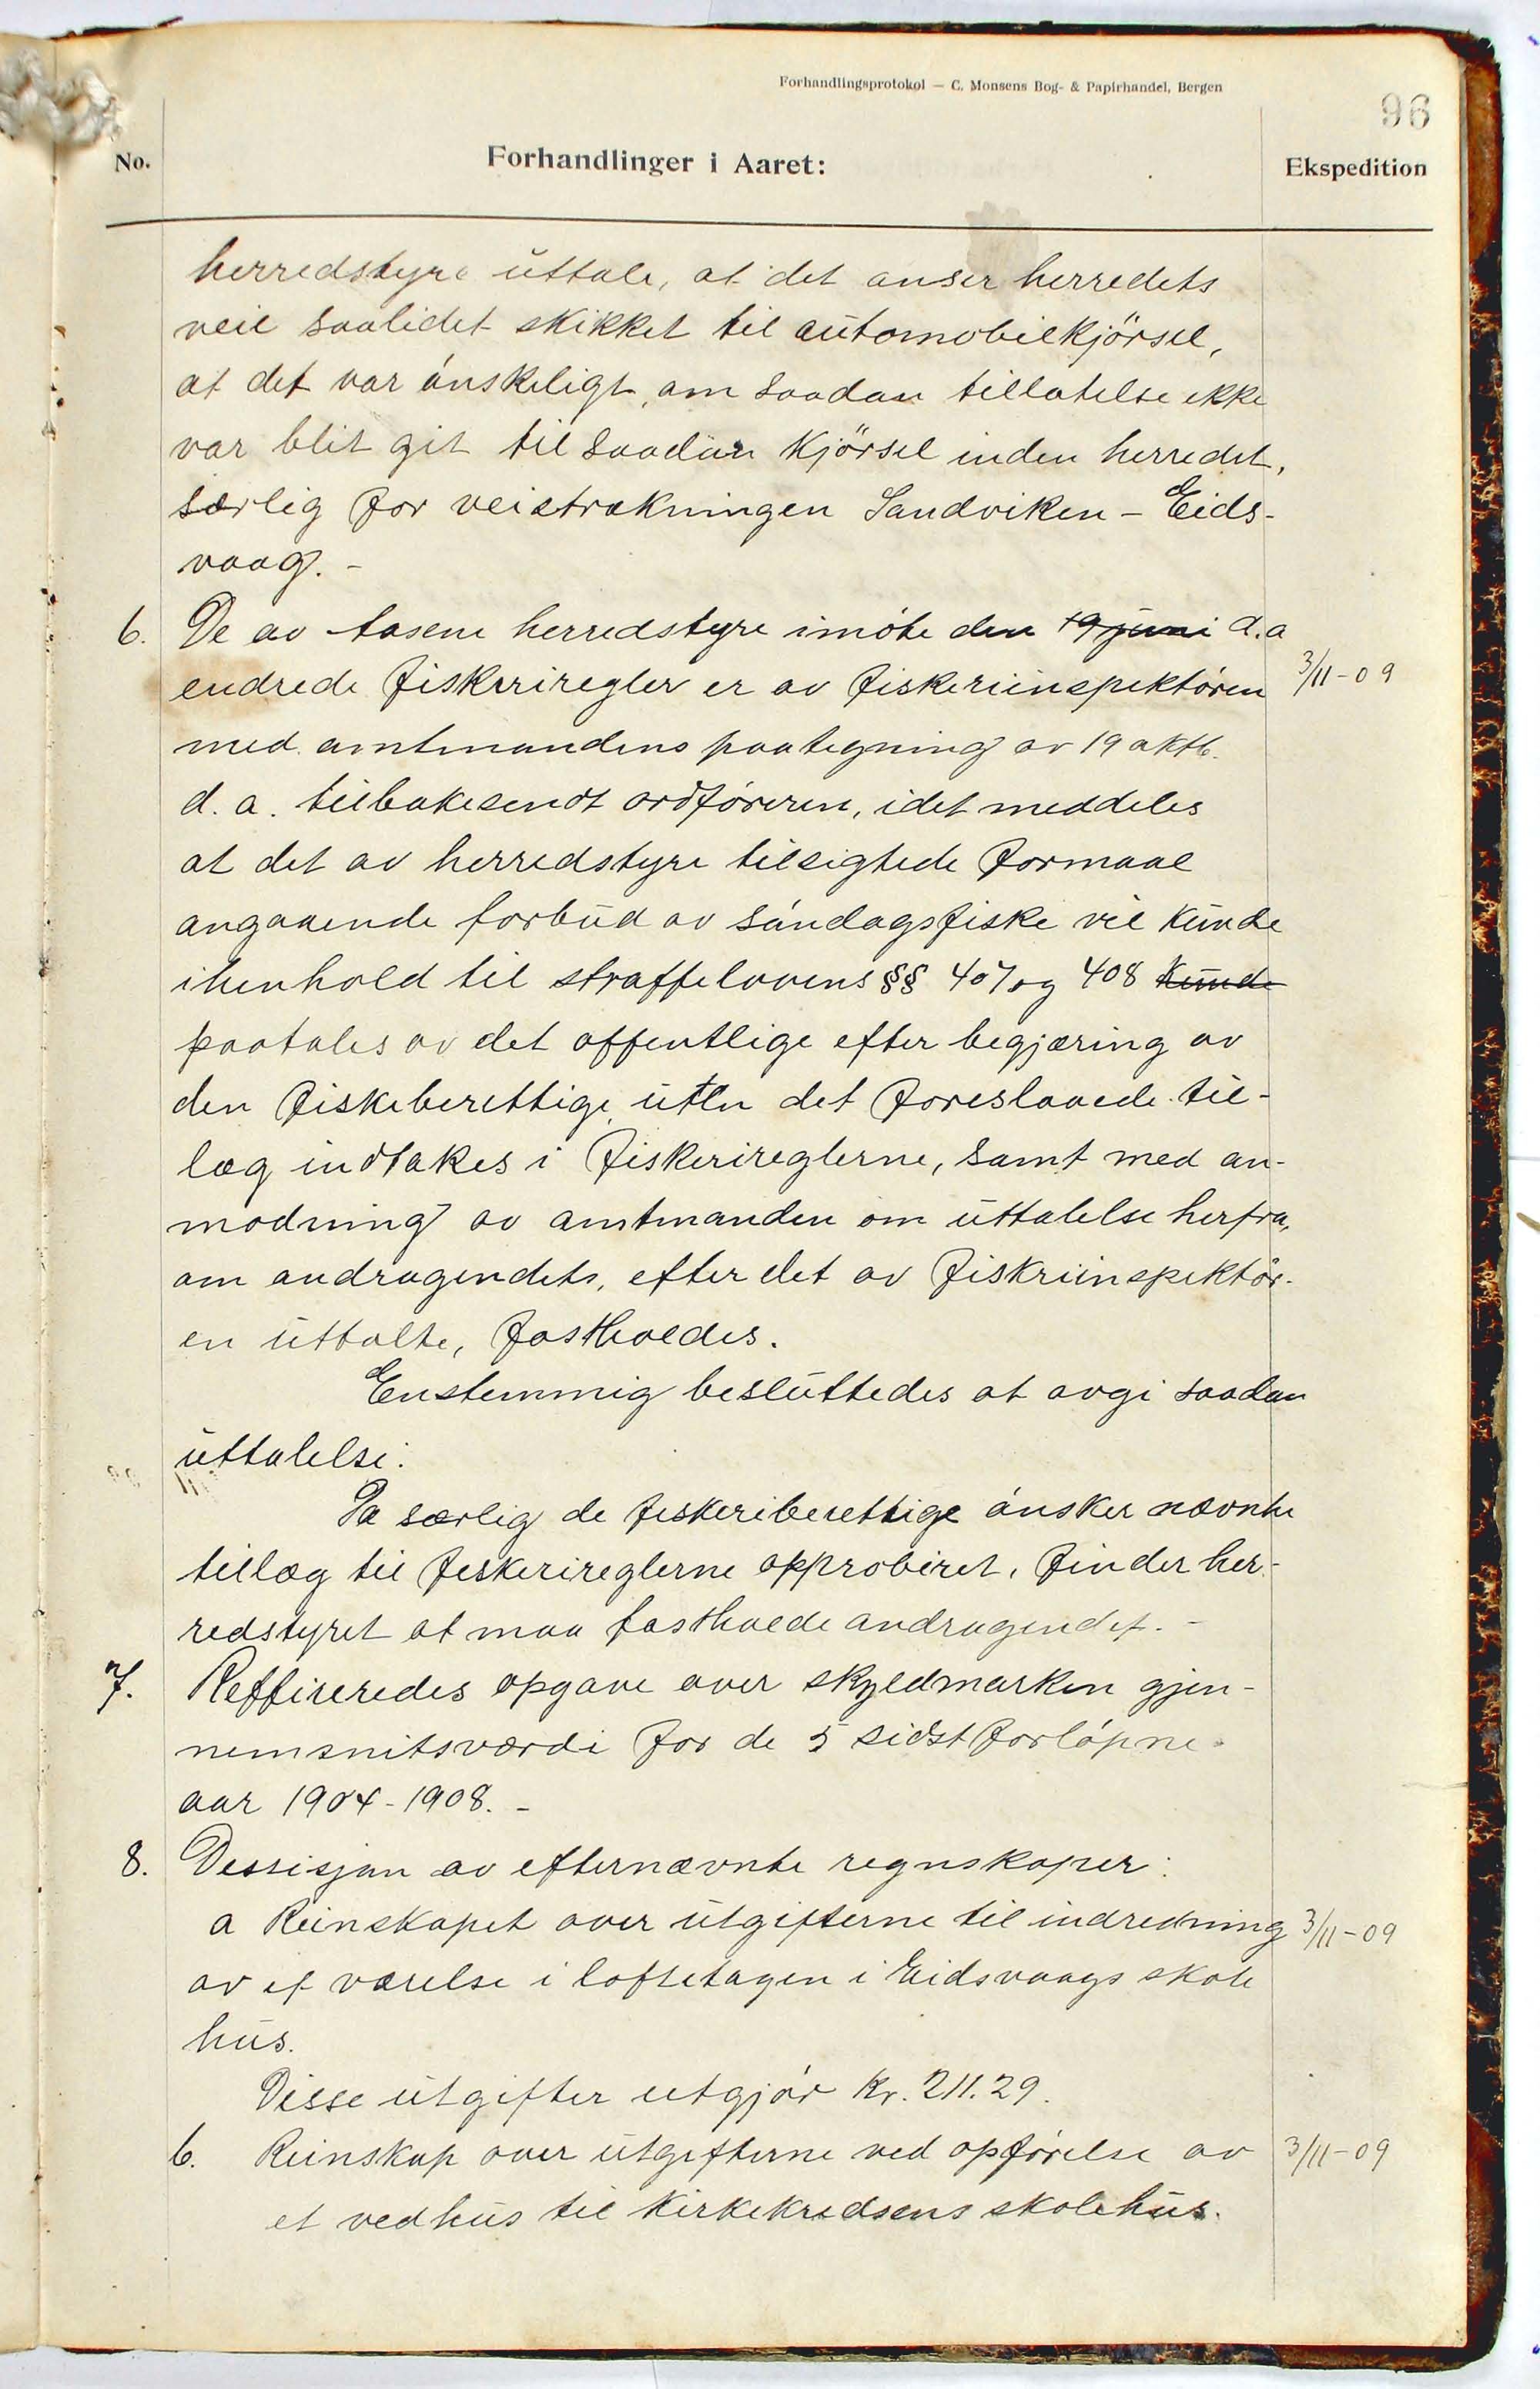 Forhandlingsprotokol – C. Monsens Bog- & Papirhandel, Bergen
96
No. Forhandlinger i Aaret: Ekspedition
herredstyre uttale, at det anser herredets
veie saalidet skikket til automobilkjörsel,
at det var ónskeligt, om saadan tillatelse ikke
var blit git til saadan kjörsel inden herredet,
særlig for veistrækningen Sandviken – Eids-
vaag. –
6. De av Aasene herredstyre imóte den 19 juni d.a
endrede fiskeriregler er av fiskeriinspektóren 3/11-09
med amtmandens paategning av 19 oktb.
d. a. tilbakesendt ordfóreren, idet meddeles
at det av herredstyre tilsigtede formaal
angaaende forbud av sóndagsfiske vil kunde
ihenhold til straffelovens §§ 407 og 408 kunde
paatales av det offentlige efter begjæring av
den fiskeberettige, uten det foreslaaede til-
læg indtakes i fiskerireglerne, samt med an-
modning av amtmanden om uttalelse herfra,
om andragendets, efter det av fiskriinspektör-
en uttalte, fastholdes.
Enstemmig besluttedes at avgi saadan
uttalelse:
Da særlig de fiskeriberettige ónsker nævnte
tillæg til fiskerireglerne approberet, finder her-
redstyret at maa fastholde andragendet. –
7. Reffireredes opgave over skyldmarken gjen-
nemsnitsværdi for de 5 sidst forlópne
aar 1904-1908. –
8. Dessisjon av efternævnte regnskaper:
a Reinskapet over utgifterne til indredning 3/11-09
av et værelse i loftetagen i Eidsvaags skole
hus.
Disse utgifter utgjór kr. 211.29.
b. Reinskap over utgifterne ved opförelse av 3/11-09
et vedhus til Kirkekredsens skolehus.